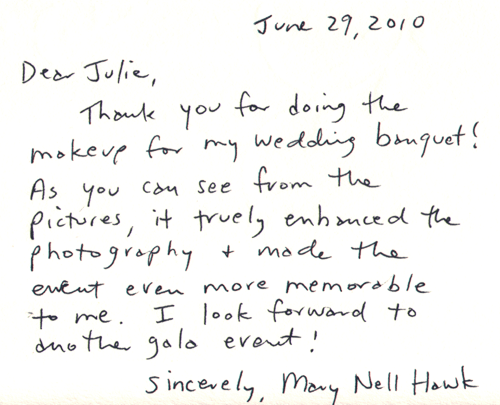 June 29, 2010
Dear Julie,
Thank you for doing the
makeup for my wedding banquet!
As you can see from the
pictures, it truely enhanced the
photography + made the
event even more memorable
to me. I look forward to
another gala event!
Sincerely, Mary Nell Hawk